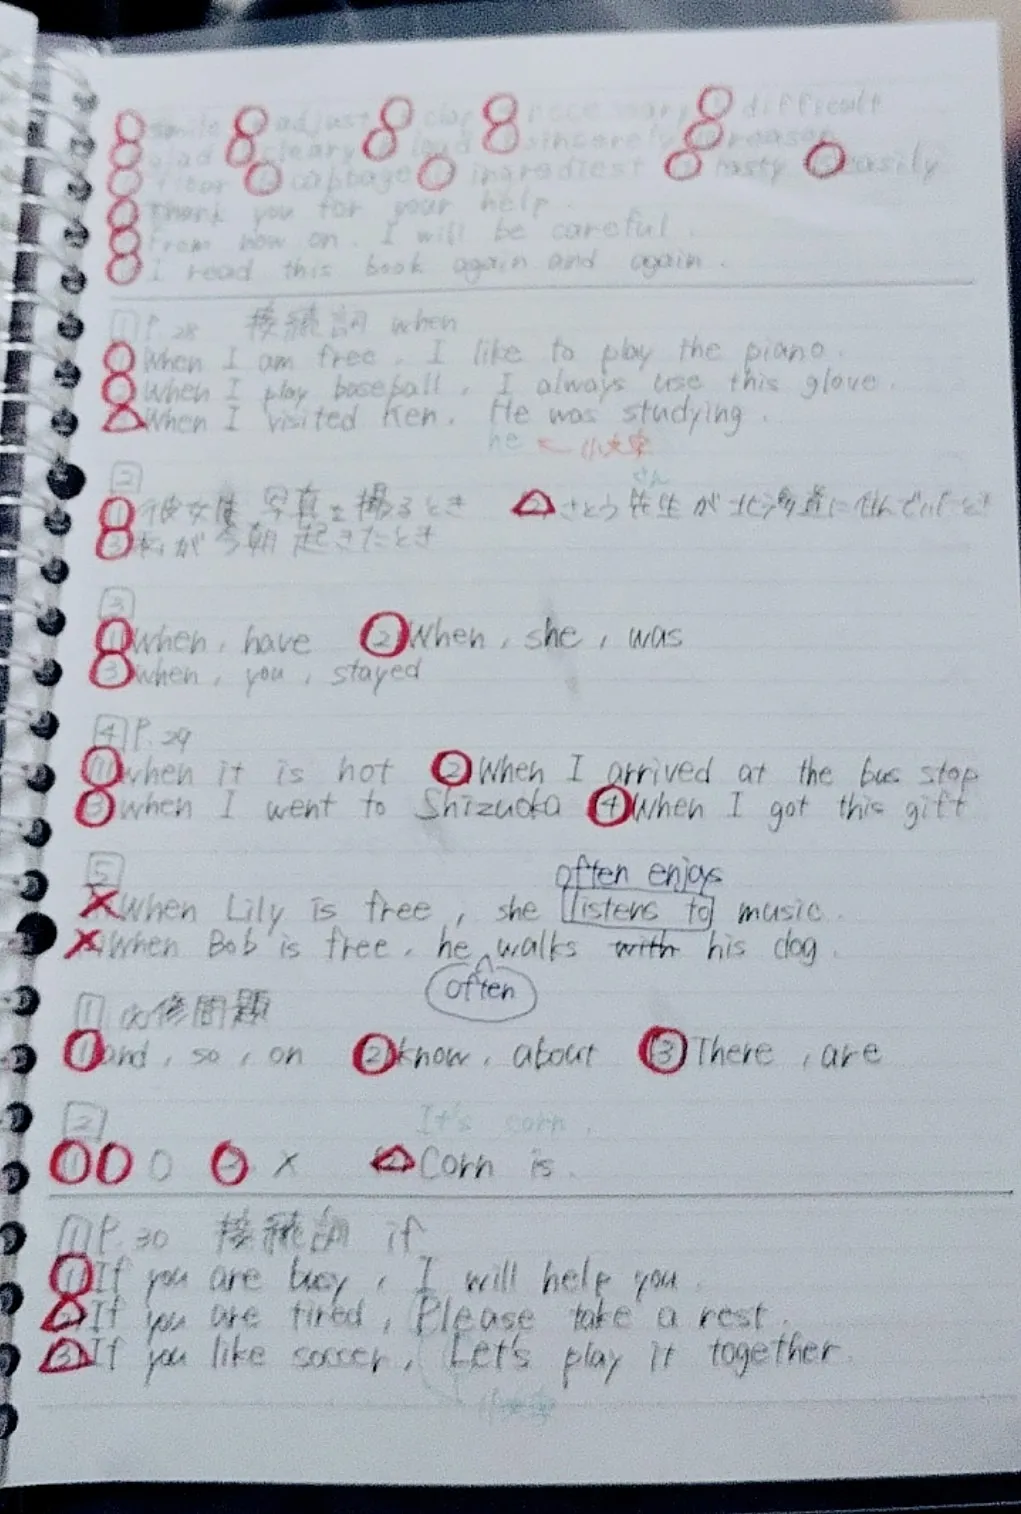 smile adjust clap necessary difficult
glad clearly loud sincerely reason
floor cabbage ingrediest tasty easily
Thank you for your help.
From now on. I will be careful.
I read this book again and again.
1 P.28 接続詞 when
When I am free. I like to play the piano.
When I play baseball, I always use this glove.
When I visited Ken. He was studying.
he ← 小文字
2
① 彼女が写真を撮るとき ② さとう先生が北海道に住んでいたとき
さん
③ 私が今朝起きたとき
3
① When, have ② When, she, was
③ when, you, stayed
4 P.29
① when it is hot ② When I arrived at the bus stop
③ when I went to Shizuoka ④ When I got this gift
5
often enjoys
When Lily is free, she listens to music.
When Bob is free. he walks with his dog.
often
1 必修問題
① and, so, on ② know, about ③ There, are
2
It's corn.
① ○ × ② Corn is.
1 P.30 接続詞 if
① If you are busy, I will help you.
② If you are tired, Please take a rest.
③ If you like soccer, Let's play it together.
小文字